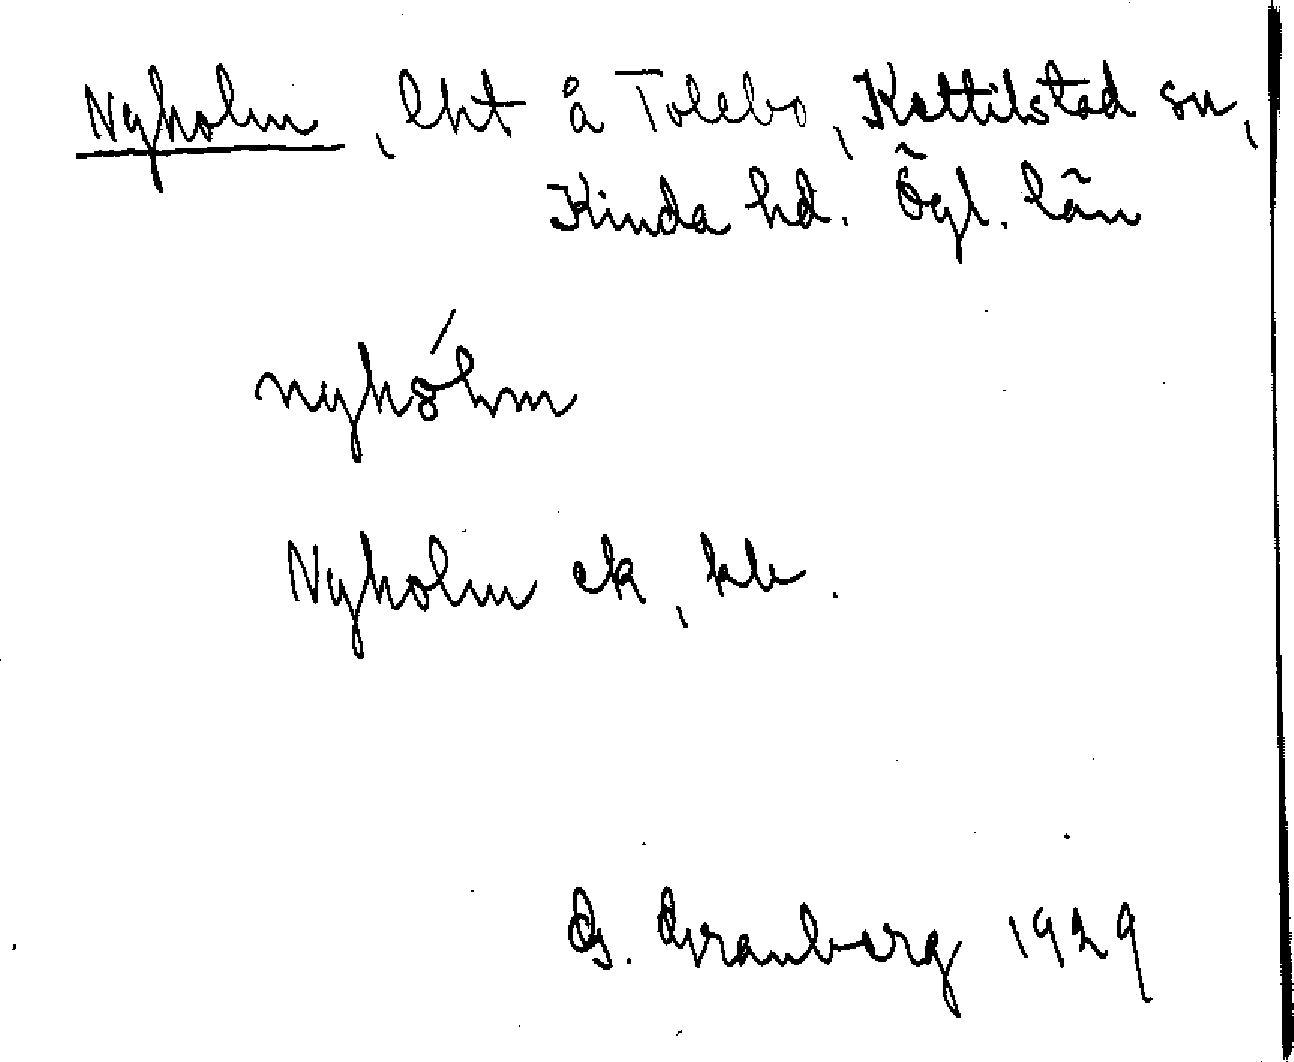 Nyholm, lht å Tolebo, Kettilstad sn,
Kinda hd. Ögl. län
nyhólm
Nyholm ek, kbr.
G. Granberg 1929